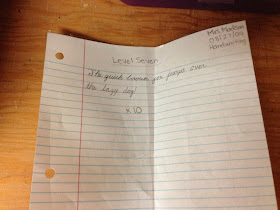 Mrs. Madison
03/27/09
Handwriting
Level Seven
The quick brown fox jumps over
the lazy dog!
x 10